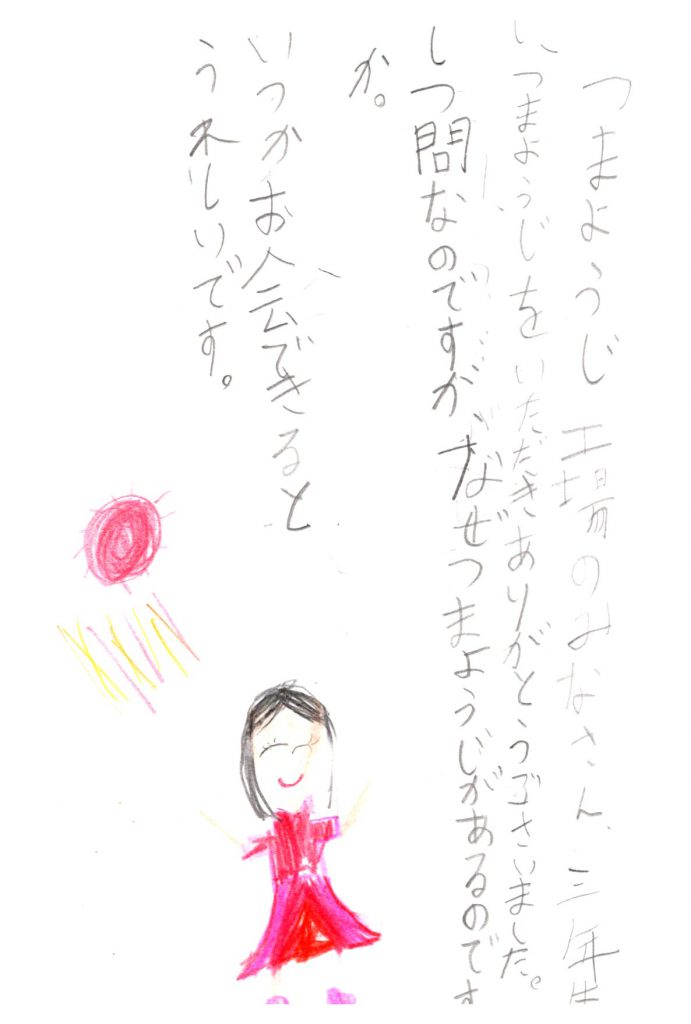 つまようじ工場のみなさん、三年生
、つまようじをいただきありがとうございました。
しつ問なのですが、なぜつまようじがあるのです
か。
いつかお会できると
うれしいです。